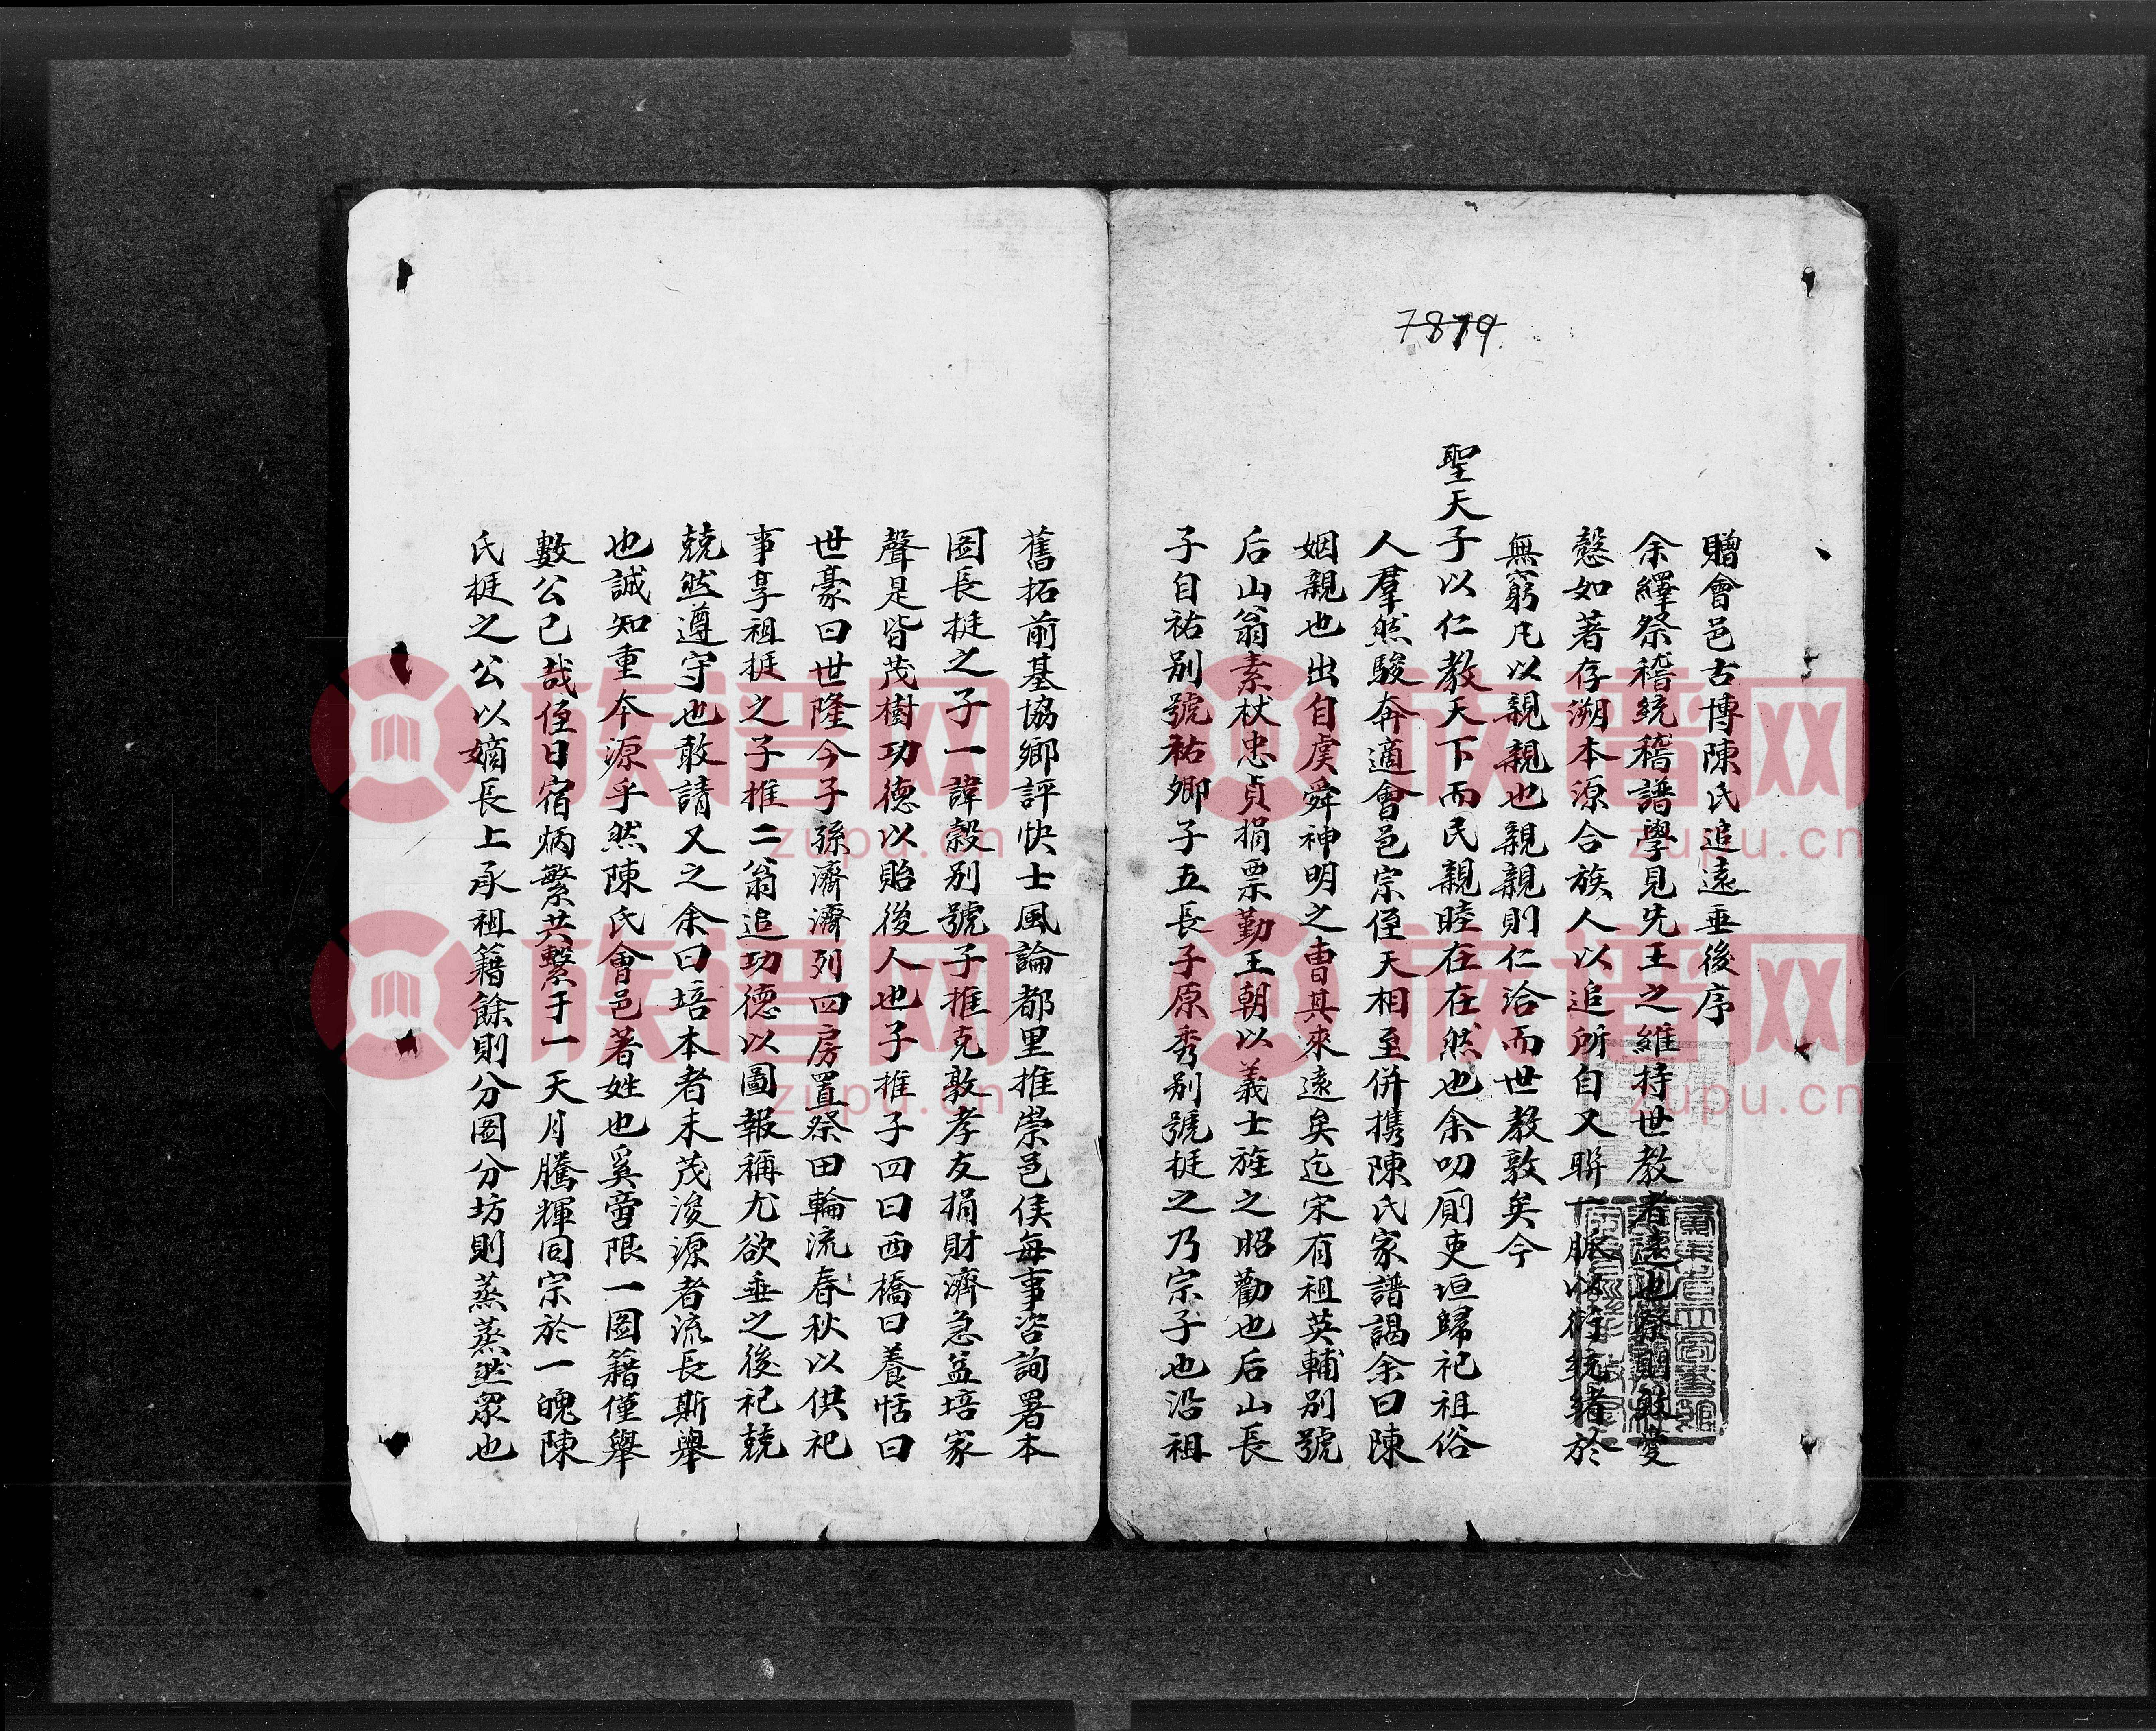 7819
贈會邑古博陳氏追遠垂後序
余繹祭稽統稽譜學見先王之維持世教者遠也祭則敦愛
慤如著存溯本源合族人以追所自又聨一脈以衍統緒於
無窮凡以親親也親親則仁洽而世教敦矣今
聖天子以仁教天下而民親睦在在然也余叨廁吏垣歸祀祖俗
人羣然駿奔適會邑宗侄天相至併携陳氏家譜謁余曰陳
姻親也出自虞舜神明之冑其來遠矣迄宋有祖英輔別號
后山翁素杖忠貞捐票勤王朝以義士旌之昭勸也后山長
子自祐別號祐卿子五長子原秀別號梃之乃宗子也沿祖
舊拓前基協鄉評快士風論都里推崇邑侯每事咨詢署本
圖長挺之子一諱榖別號子推克敦孝友捐財濟急益培家
聲是皆茂樹功德以貽後人也子推子四曰西橋曰養恬曰
世豪曰世隆今子孫濟濟列四房置祭田輪流春秋以供祀
事享祖梃之子推二翁追功德以圖報稱尤欲垂之後祀兢
兢然遵守也敢請又之余曰培本者末茂浚源者流長斯舉
也誠知重本源乎然陳氏會邑著姓也奚啻限一圖籍僅舉
數公已哉侄日宿炳繁共繫于一天月騰輝同宗於一魄陳
氏梃之公以嫡長上承祖籍餘則分圖分坊則蒸蒸然眾也
族谱网
zupu.cn
族谱网
zupu.cn
族谱网
zupu.cn
族谱网
zupu.cn